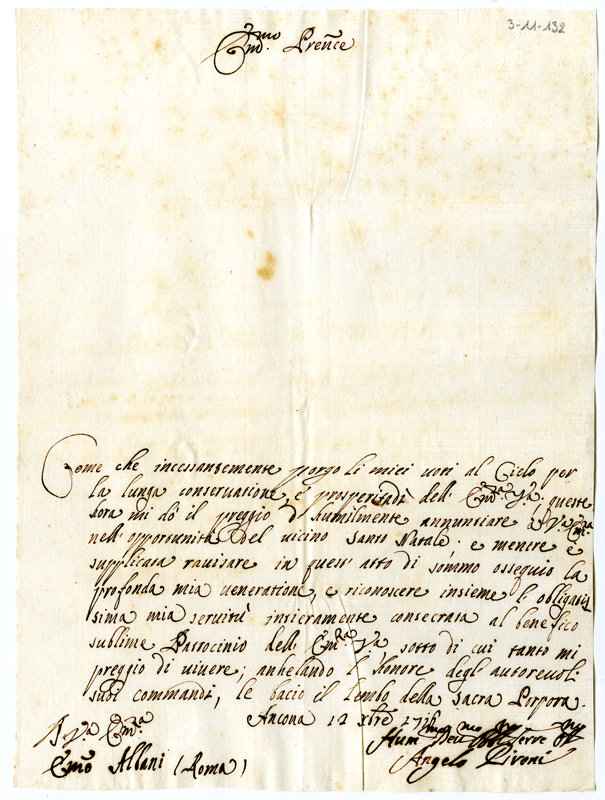 3-11-132
Emo Prenče
Come che incessantemente porgo li miei voti al Cielo per
la lunga conservatione, e prosperità dell' Em:za Va, queste
hora mi dò il preggio d'humilmente annuntiare à Va Em:a
nell' opportunità del vicino Santo Natale; e mentre è
supplicata ravisare in quest' atto di sommo ossequio la
profonda mia veneratione, e riconoscere insieme l'obligatis
sima mia servitù intieramente consecrata al benefico
sublime Patrocinio dell' Em:za Va, sotto di cui tanto mi
preggio di vivere; anhelando l'honore degl' autorevoli
suoi commandi, le bacio il lembo della Sacra Porpora.
Ancona 12 Xbre
Va Em:a
Hum Dev Obl Serre
Emo Albani (Roma)
Angelo Pironi